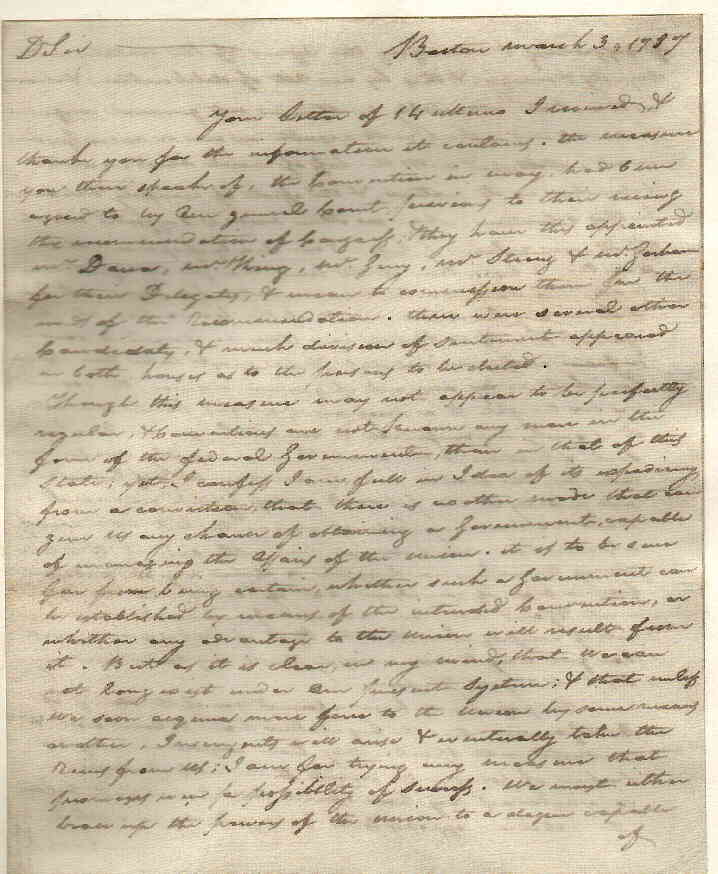 D Sir Boston March 3, 1787
Your Letter of 14 ultimo I received, &
thank you for the information it contains. the measure
you then speak of, the Convention in May, had been
agreed to by our general Court previous to their seeing
the recommendation of Congress. They have this appointed
Mr. Dana, Mr. King, Mr. Gerry, Mr. Strong & Mr. Gorham
for their Delegates, & mean to commission them for the
of the Recommendation. there were several other
Candidates, & much division of sentiment appeared
in both houses as to the persons to be elected.
Though this measure may not appear to be perfectly
regular, & Conventions are not known any more in the
form of the federal Government, than in that of this
State; yet, I confess I am full in Idea of its expediency,
from a conviction, that there is no other mode that can
give us any chance of obtaining a Government, capable
of managing the Affairs of the Union. it is to be sure
far from being certain, whether such a Government can
be established by means of the intended Convention, or
whether any advantage to the Union will result from
it. But as it is clear, in my mind, that we can
not long exist under our present System; & that unless
we soon acquire more force to the Union by some means
or other, Insurgents will arise & eventually take the
Reins from us; I am for trying any measure that
promises even a possibility of success. We must either
brace up the powers of the union to a degree capable
of